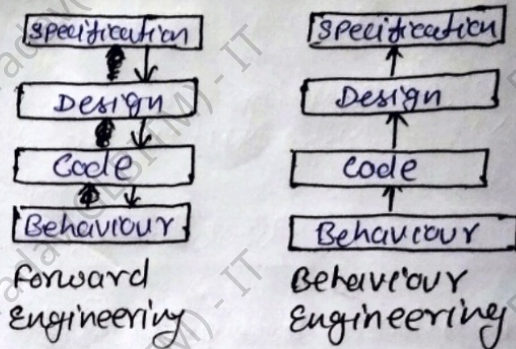 Specification
Design
Code
Behaviour
Forward
Engineering
Specification
Design
Code
Behaviour
Behaviour
Engineering
- IT
- IT